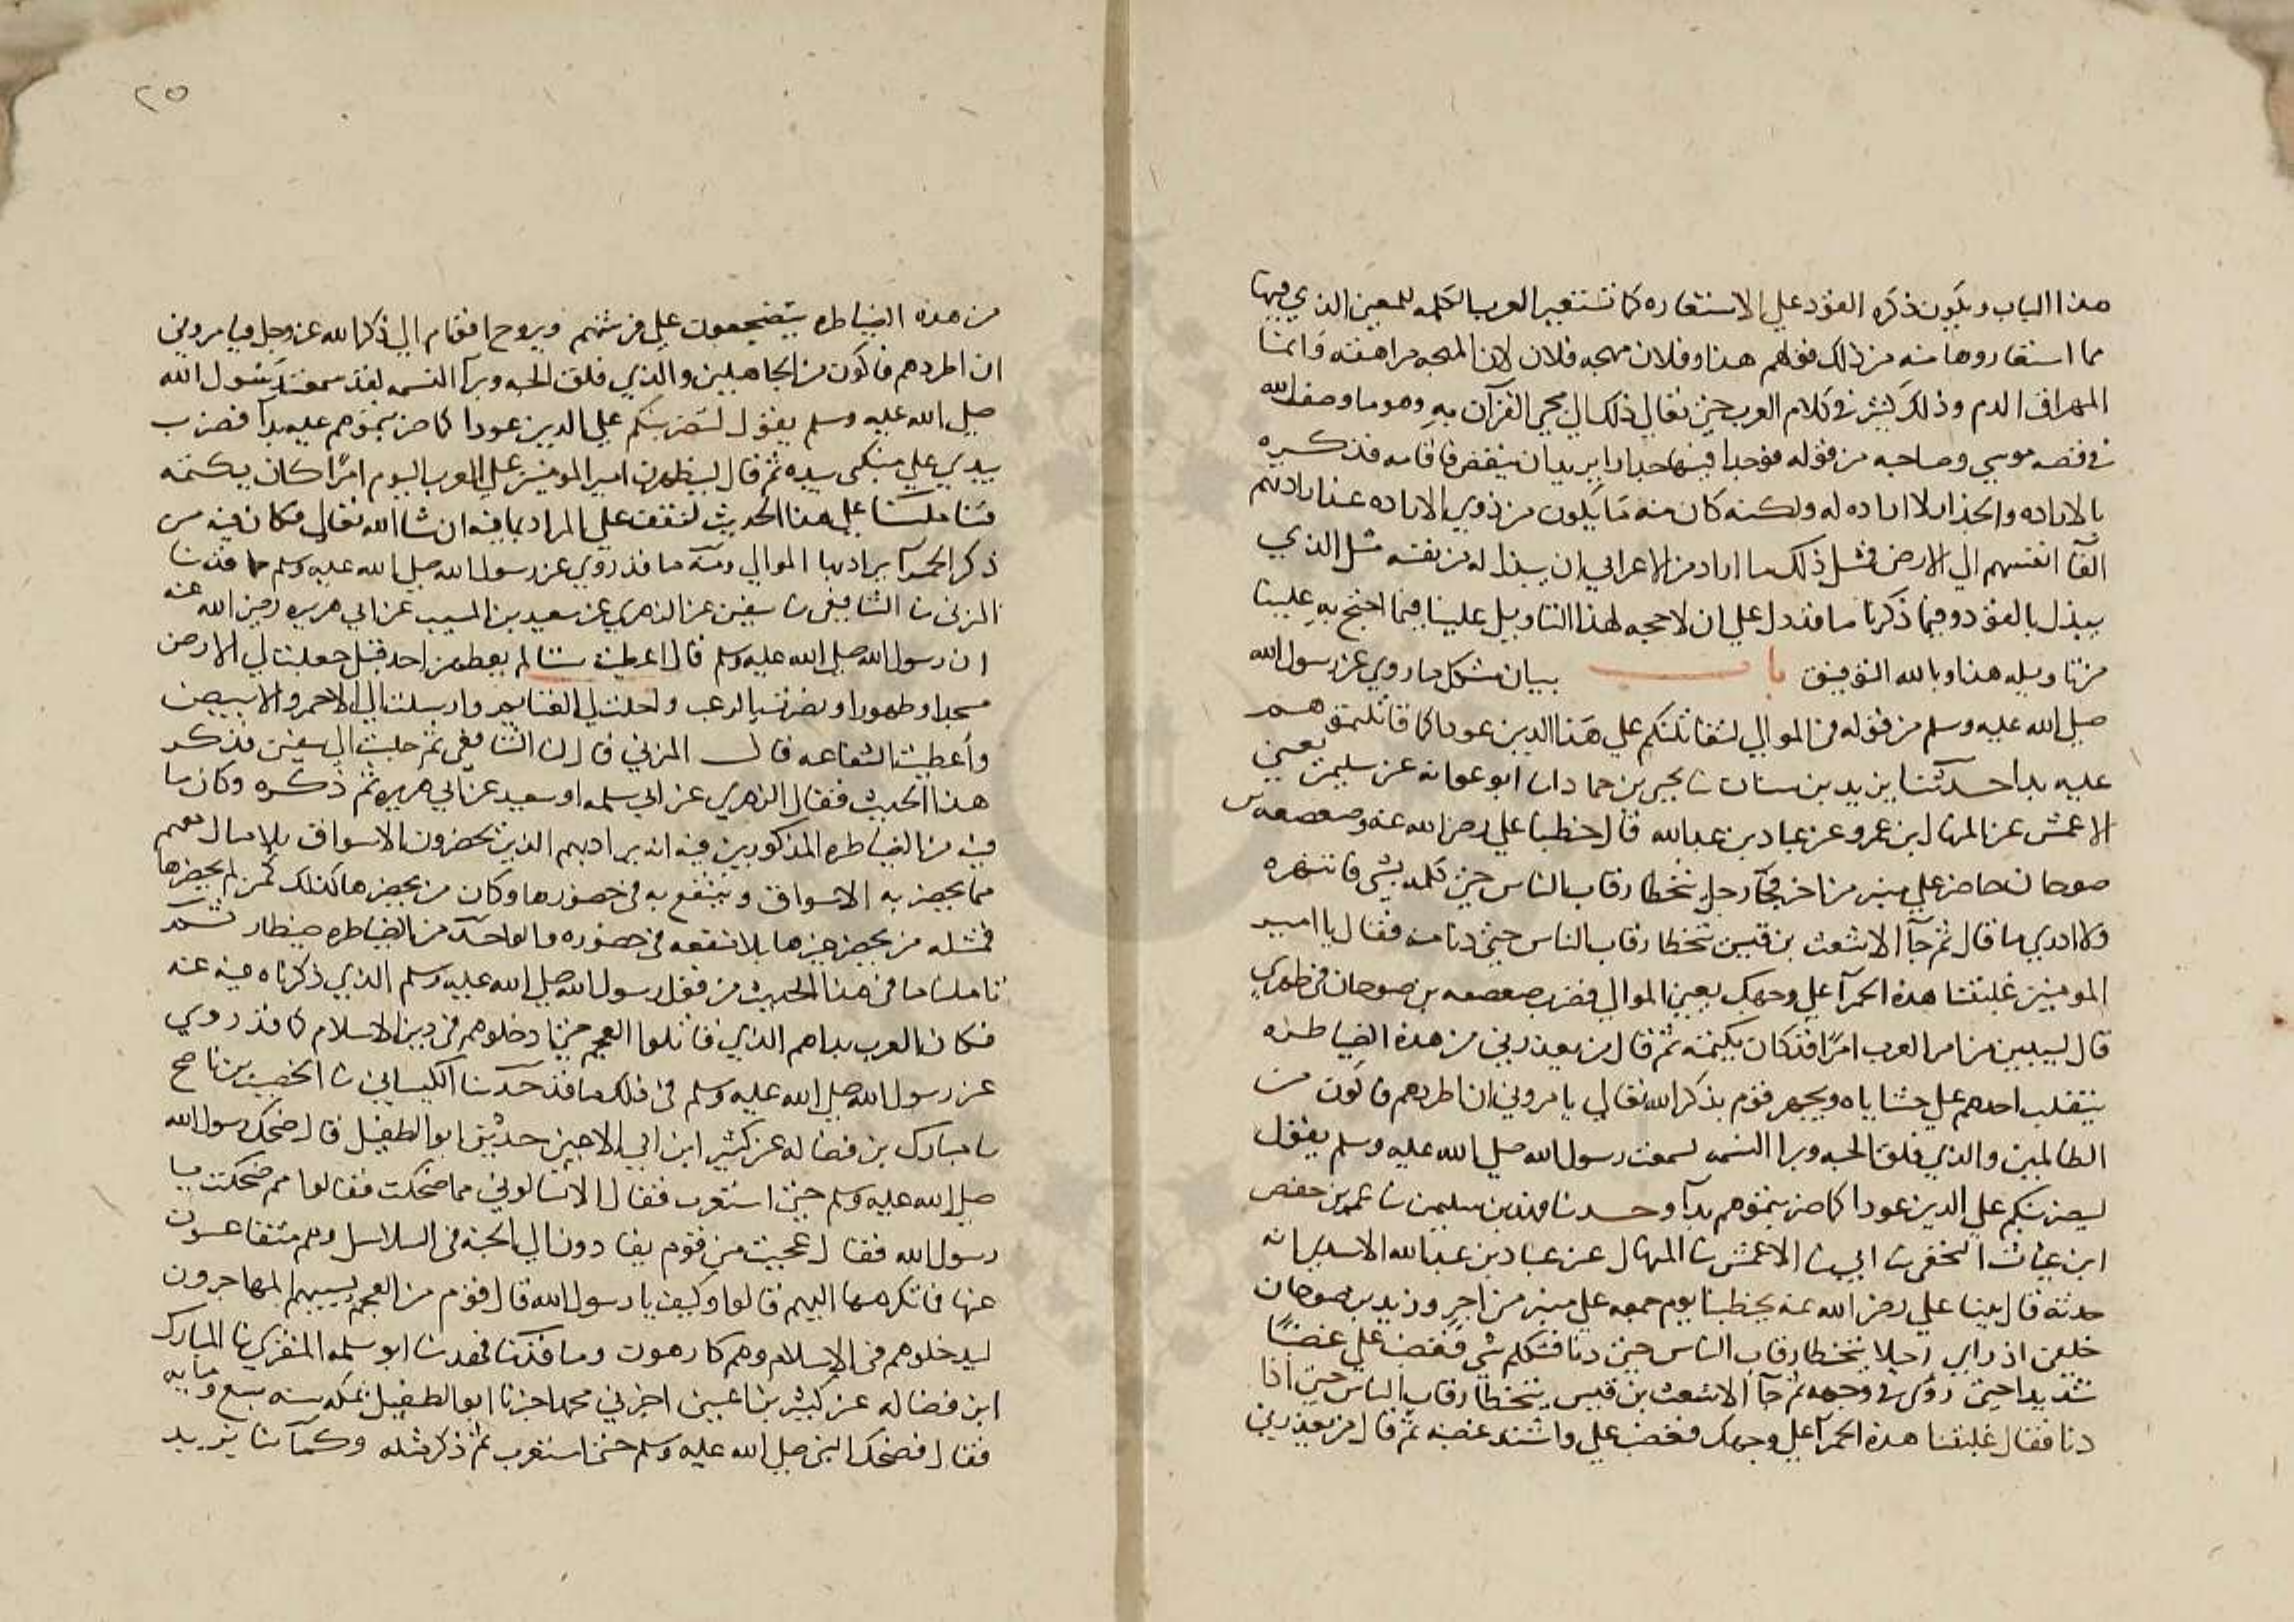 هذا الباب ويكون ذكره القود علي الاستعاره كما تستعير العرب الكلمه للمعين الذي فيها
مما استعاروها منه من ذلك قولهم هذا وفلان مهجه فلان لان المهجه مراهقته وانما
المهراق الدم وذلك كثير في كلام العرب حتي تعالي ذلك الي مجي القرآن به وهو ما وصف الله
في قصه موسي وصاحبه من قوله فوجدا فيها جدارا يريد ان ينقض فاقامه فذكره
بالاراده والجدار لا اراده له ولكنه كان منه ما يكون من ذوي الاراده عند ارادتهم
القآ انفسهم الي الارض فمثل ذلك ما اراد من الاعرابي ان يبذل له من نفسه مثل الذي
يبذل بالقود وفيما ذكرنا ما قد دل علي ان لا حجه لهذا التاويل علينا فيما احتج به علينا
من تاويله هذا وبالله التوفيق باب بيان مشكل ما روي عن رسول الله
صلي الله عليه وسلم من قوله في الموالي لتقاتلنكم علي هذا الدين عودا كما قاتلتموهم
عليه بدا حدثنا يزيد بن سنان نا يحيي بن حماد انا ابو عوانه عن سليمن يعني
الاعمش عن المنهال بن عمرو عن عباد بن عبدالله قال خطبنا علي رضي الله عنه وصعصعه بن
صوحان حاضر علي منبر من اجر فجآ رجل يتخطا رقاب الناس حتي كلمه بشي فانتهره
ولا ادري ما قال ثم جآ الاشعث بن قيس يتخطا رقاب الناس حتي دنا منه فقال يا امير
المومنين غلبتنا هذه الحمرآ علي وجهك يعني الموالي فضرب صعصعه بن صوحان في ظهري
قال ليبيين من امر العرب امرا قد كان يكتمه ثم قال من يعذرني من هذه الضياطره
يتقلب احدهم علي حشاياه ويهجر قوم بذكر الله تعالي يامروني ان اطردهم فاكون من
الظالمين والذي فلق الحبه وبرا النسمه لسمعت رسول الله صلي الله عليه وسلم يقول
ليضربنكم علي الدين عودا كما ضربتموهم بدآ وحدثنا فهد بن سليمن نا عمر بن حفص
ابن غياث النخعي نا ابي نا الاعمش نا المنهال عن عباد بن عبدالله الاسدي انه
حدثه قال بينا علي رضي الله عنه يخطبنا يوم جمعه علي منبر من اجر وزيد بن صوحان
خلفي اذ راي رجلا يتخطا رقاب الناس حتي دنا فتكلم بشي فغضب علي غضبا
شديدا حتي رؤي في وجهه ثم جآ الاشعث بن قيس يتخطا رقاب الناس حتي اذا
دنا فقال غلبتنا هذه الحمرآ علي وجهك فغضب علي واشتد غضبه ثم قال من يعذرني
٢٥
من هذه الضياطره يتضجعون علي فرشهم ويروح اقوام الي ذكر الله عز وجل فيامروني
ان اطردهم فاكون من الجاهلين والذي فلق الحبه وبرآ النسمه لقد سمعت رسول الله
صلي الله عليه وسلم يقول لتضربنكم علي الدين عودا كما ضربتموهم عليه بدآ فضرب
بيدي علي منكبي بيده ثم قال ليظهرن امير المومنين علي العرب اليوم امرا كان يكتمه
فتاملنا علي هذا الحديث لنقف علي المراد بما فيه ان شا الله تعالي فكان فيه من
ذكر الحمرآ يراد بها الموالي ومنه ما قد روي عن رسول الله صلي الله عليه وسلم مما حدثنا
المزني نا الشافعي نا سفين عن الزهري عن سعيد بن المسيب عن ابي هريره رضي الله عنه
ان رسول الله صلي الله عليه وسلم قال اعطيت ستا لم يعطهن احد قبل جعلت لي الارض
مسجدا وطهورا ونصرت بالرعب واحلت لي الغنايم وارسلت الي الاحمر والابيض
وأعطيت الشفاعه قال المزني قال لنا الشافعي ثم جلست الي سفين فذكر
هذا الحديث فقال الزهري عن ابي سلمه او سعيد عن ابي هريره ثم ذكره وكان ما
فيه من الضياطره المذكورين فيه انه يراد بهم الذين يحضرون الاسواق بلا مال معهم
مما يحضر به الاسواق وينتفع به في حضورها وكان من يحضرها كذلك كمن لم يحضرها
فمثله من يحضر غيرها بلا نفعه في حضوره والواحد من الضياطره ضيطار ثم
تاملنا ما في هذا الحديث من قول رسول الله صلي الله عليه وسلم الذي ذكرناه فيه عنه
فكان العرب بدا هم الذي قاتلوا العجم حتي ادخلوهم في دين الاسلام كما قد روي
عن رسول الله صلي الله عليه وسلم في ذلك ما قد حدثنا الكيساني نا الخصيب بن ناصح
نا مبارك بن فضاله عن كثير ابن ابي الاعين حدثني ابو الطفيل قال ضحك رسول الله
صلي الله عليه وسلم حتي استغرب فقال الا تسالوني مما ضحكت فقالوا مم ضحكت يا
رسول الله فقال عجبت من قوم يقادون الي الجنه في السلاسل وهم يتقاعسون
عنها فما تكرهها اليهم قالوا وكيف يا رسول الله قال قوم من العجم يسبيهم المهاجرون
ليدخلوهم في الاسلام وهم كارهون وما قد حدثنا فهد نا ابو سلمه المنقري نا المبارك
ابن فضاله عن كثير بن اعين اخبرني محمد اخبرنا ابو الطفيل بمكه سنه سبع ومايه
فقال فضحك النبي صلي الله عليه وسلم حتي استغرب ثم ذكر مثله وكما نا يزيد